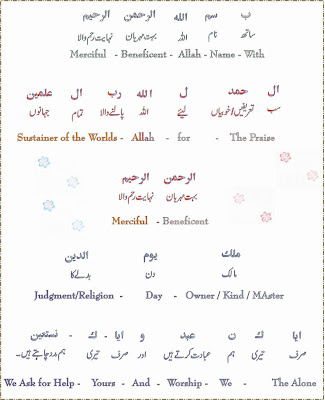 ب سم الله الرحمن الرحیم
ساتھ نام اللہ بہت مہربان نہایت رحم والا
Merciful - Beneficent - Allah - Name - With
ال حمد ل الله رب ال علمین
سب تعریفیں/خوبیاں لیئے اللہ پالنے والا تمام جہانوں
Sustainer of the Worlds - Allah - for - The Praise
الرحمن الرحیم
بہت مہربان نہایت رحم والا
Merciful - Beneficent
ملك یوم الدین
مالک دن بدلے کا
Judgment/Religion - Day - Owner / Kind / MAster
ایا ك ن عبد و ایا - ك - نستعین
صرف تیری ہم عبادت کرتے ہیں اور صرف تیری ہم مدد چاہتے ہیں۔
We Ask for Help - Yours - And - Worship - We - The Alone